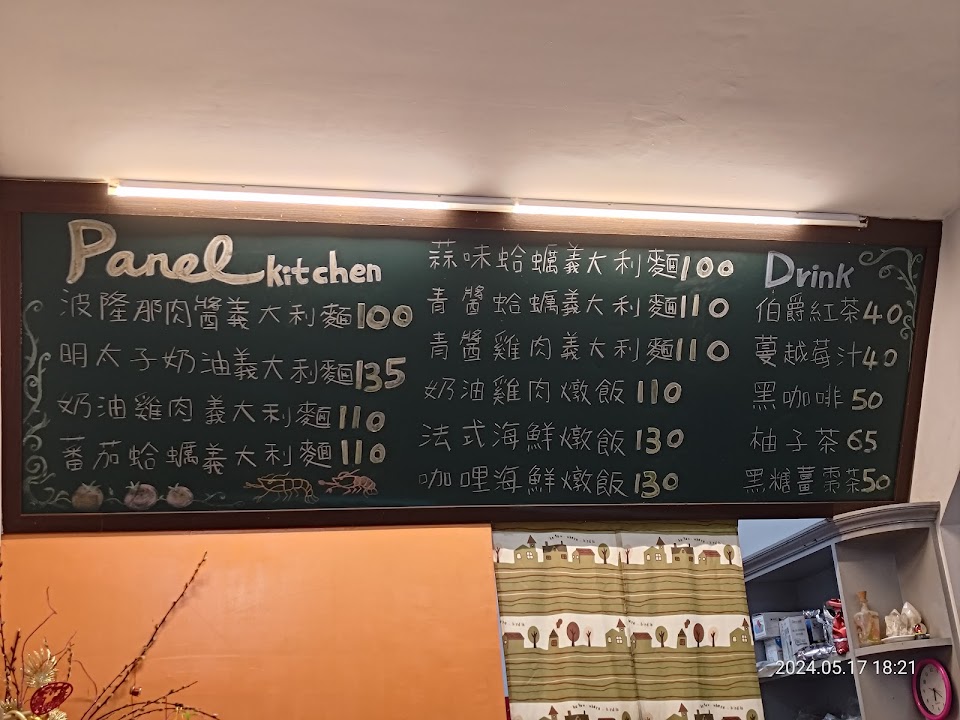 Panel kitchen
波隆那肉醬義大利麵100
明太子奶油義大利麵135
奶油雞肉義大利麵110
蕃茄蛤蠣義大利麵110
蒜味蛤蠣義大利麵100
青醬蛤蠣義大利麵110
青醬雞肉義大利麵110
奶油雞肉燉飯110
法式海鮮燉飯130
咖哩海鮮燉飯130
Drink
伯爵紅茶40
蔓越莓汁40
黑咖啡50
柚子茶65
黑糖薑棗茶50
2024.05.17 18:21